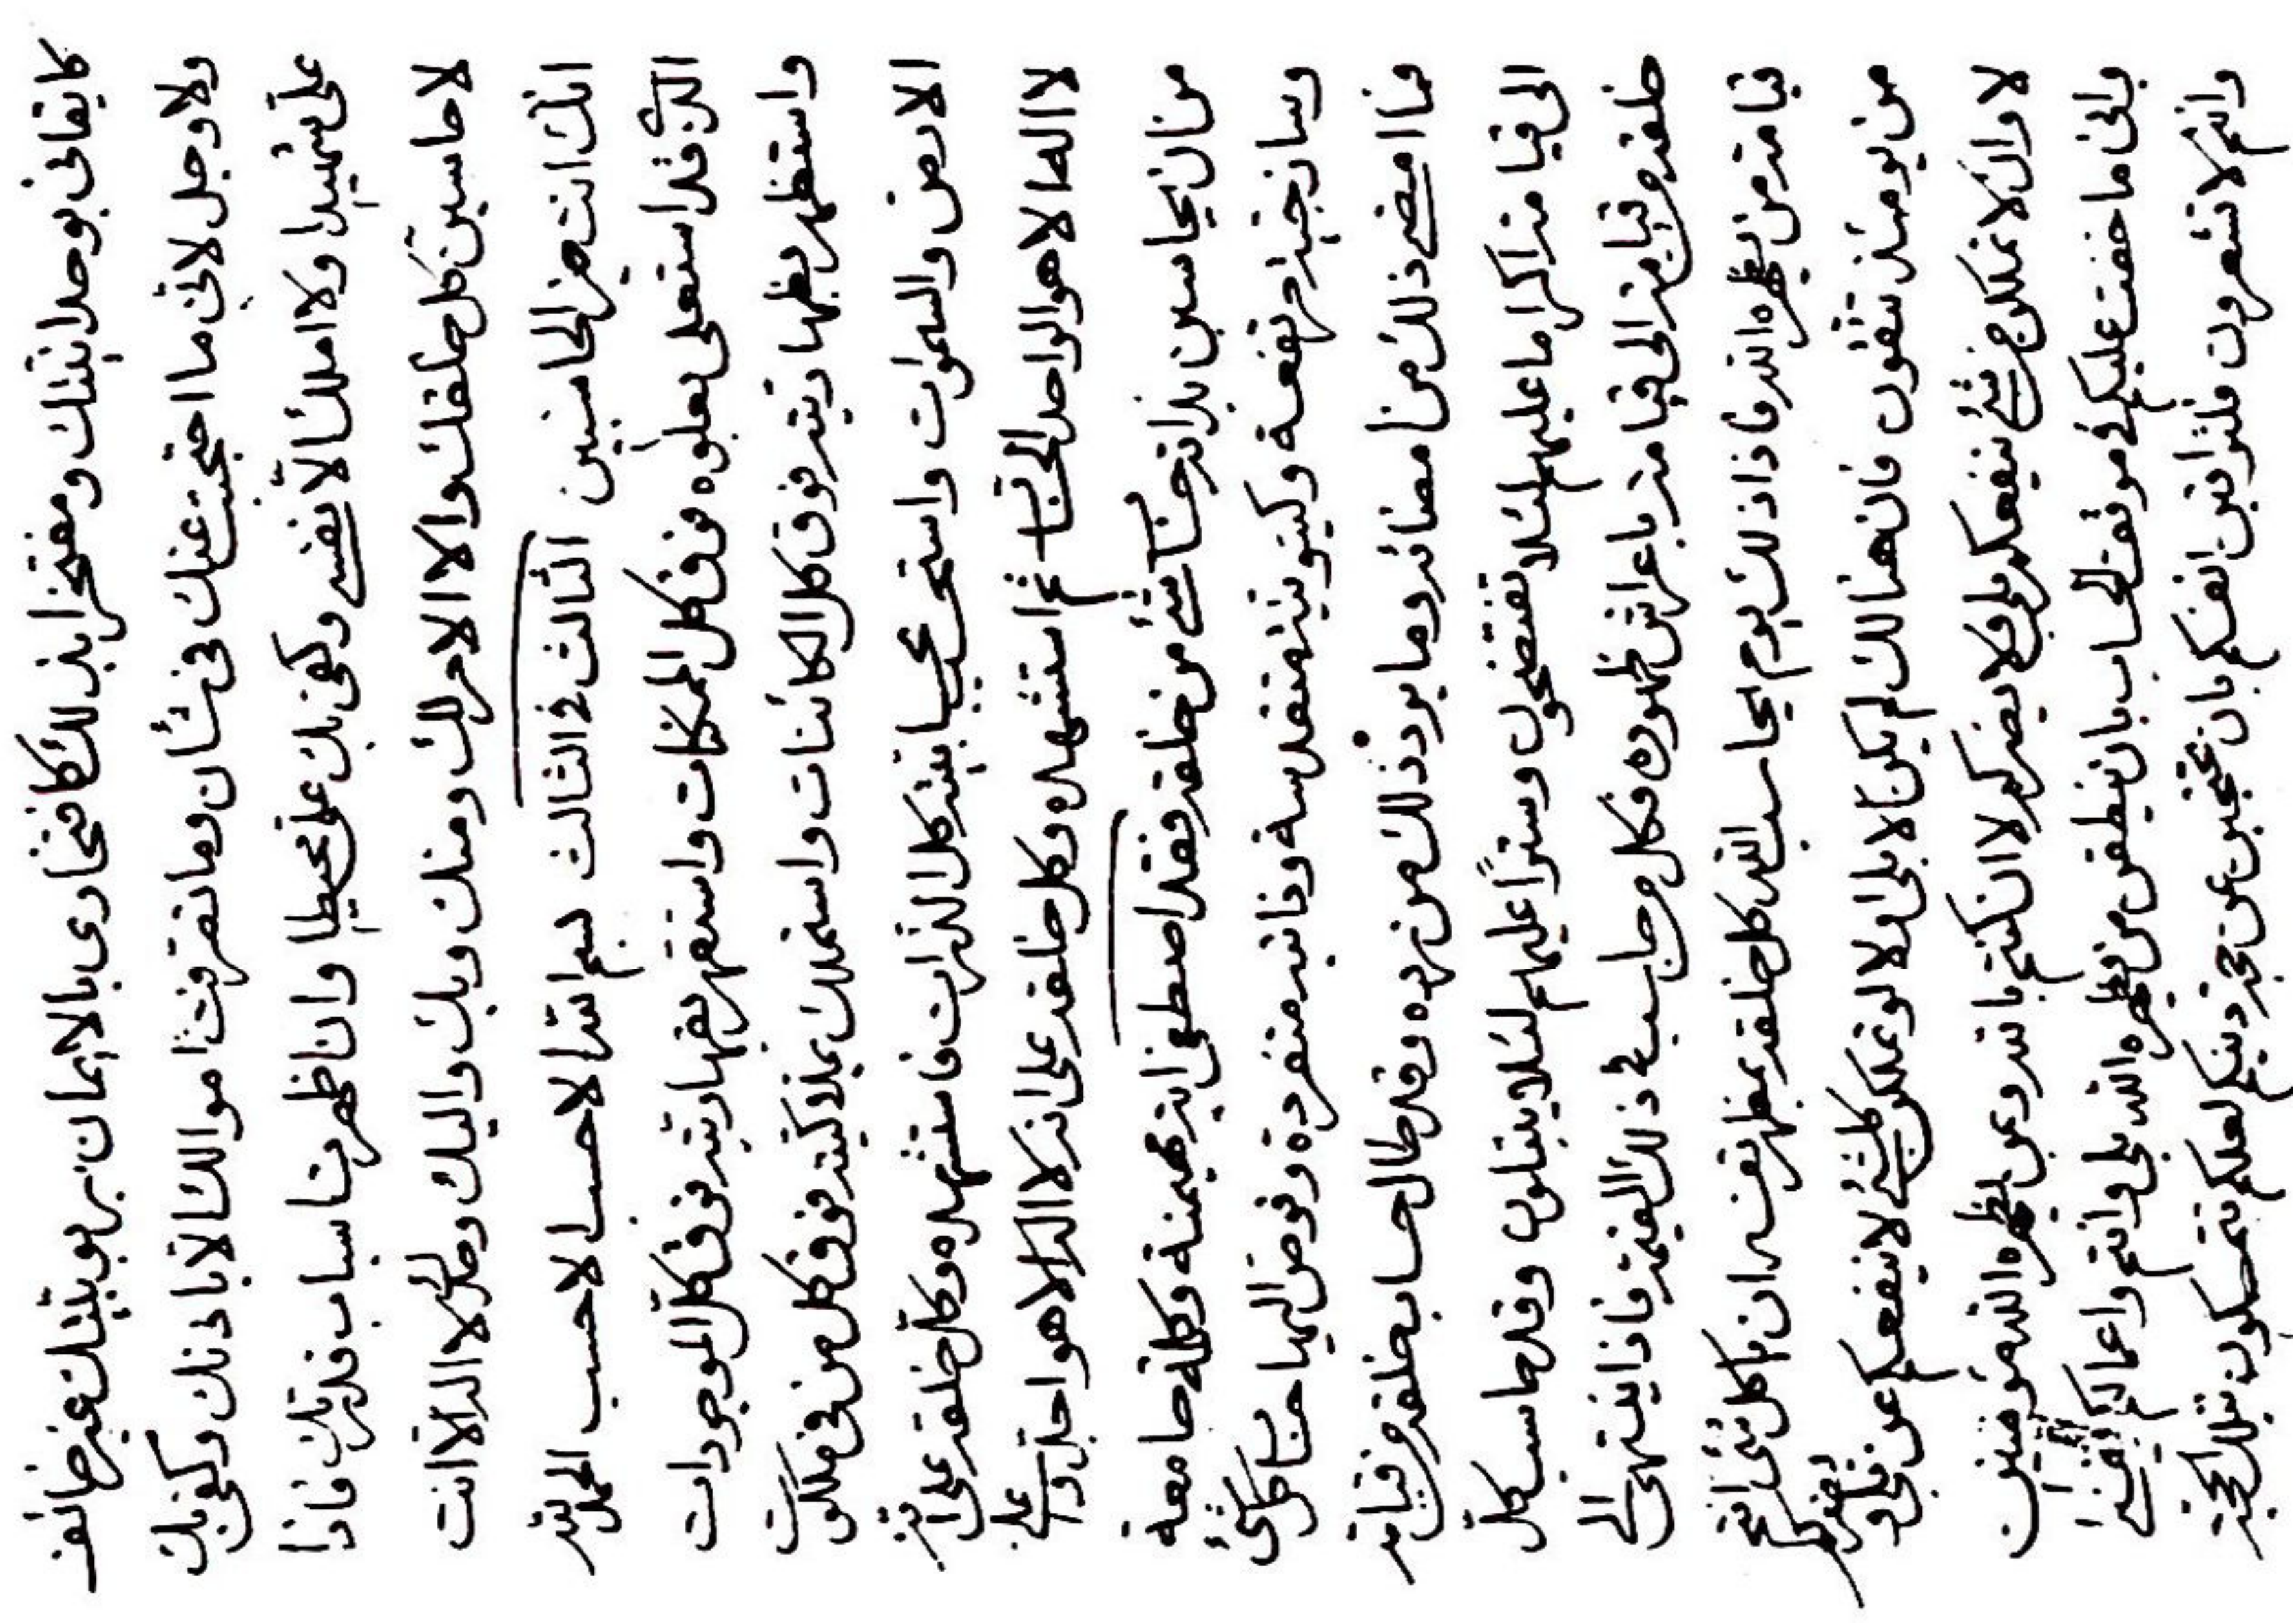 كايقانى بوحدانيتك ومفتخرا بذلك كافتخارى بالايمان بربوبيتك غير خائف
ولا وجل لانى ما احتجبت عنك فى شأن وما تصرفت اموالك الا باذنك وكفى بك
على شهيدا ولا املك الا نفسى وكفى بك على محيطا وان اظهرتنا اسباب قدرتك فاذا
لاحاسبن كل خلقك والا الامر لك ومنك وبك واليك وحدك لا اله الا انت
انك انت خير الحاسبين الثالث فى الثالث بسم الله الاحسب الاحسب الحمد لله
الذى قد استعلى بعلوه فوق كل الممكنات واستقهر بقهاريته فوق كل الموجودات
واستظهر بظهاريته فوق كل الكائنات واستملك بملاكيته فوق كل من فى ملكوت
الارض والسموات كل الذرات فاستشهده وكل خلقه على انه
لا اله الا هو الواحد الحساب ثم استشهده وكل خلقه على انه لا اله الا هو
من ان يحاسبن بذاته حساب شئ من خلقه فقد اصطفى انية مهيمنة وكلمة جامعة
وساذجية مرتفعة وكينونية متقدسة وذاتية منفردة وفوض اليها حساب كلشئ
فما امضى ذلك من امضائه وما يرد ذلك من رده وقد طال حساب خلقه من قيامة
الى قيامة اكراما عليهم لئلا تفتضحون وسترا عليهم لئلا يبتلون وقد حاسب كل
خلقه من قيامة الى قيامة باعراش ظهوره فكل من حاسب فى ذلك القيمة فاذا ينتهى الى
قيامة من يظهره الله فاذا ذلك يوم يحاسب الله كل خلقه بمظهر نفسه ان يا كل شئ
من يومئذ تتقون فان هنالك لم يكن الا بلى او لا لو تملكن كلشئ لا ينفعكم عن بلى
لا وان لا تملكن من شئ ينفعكم بلى ولا يضركم لا ان كنتم بالله وبمن يظهره الله مؤمنين
وانى ما خفت عليكم فى موقف الحساب بان ينطقن من يظهره الله بلى وانتم واعمالكم
وانتم لا تشعرون فلتراقبن انفسكم بان تحتجبن عن حجة دينكم لعلكم تتمسكون بتلك الحجة